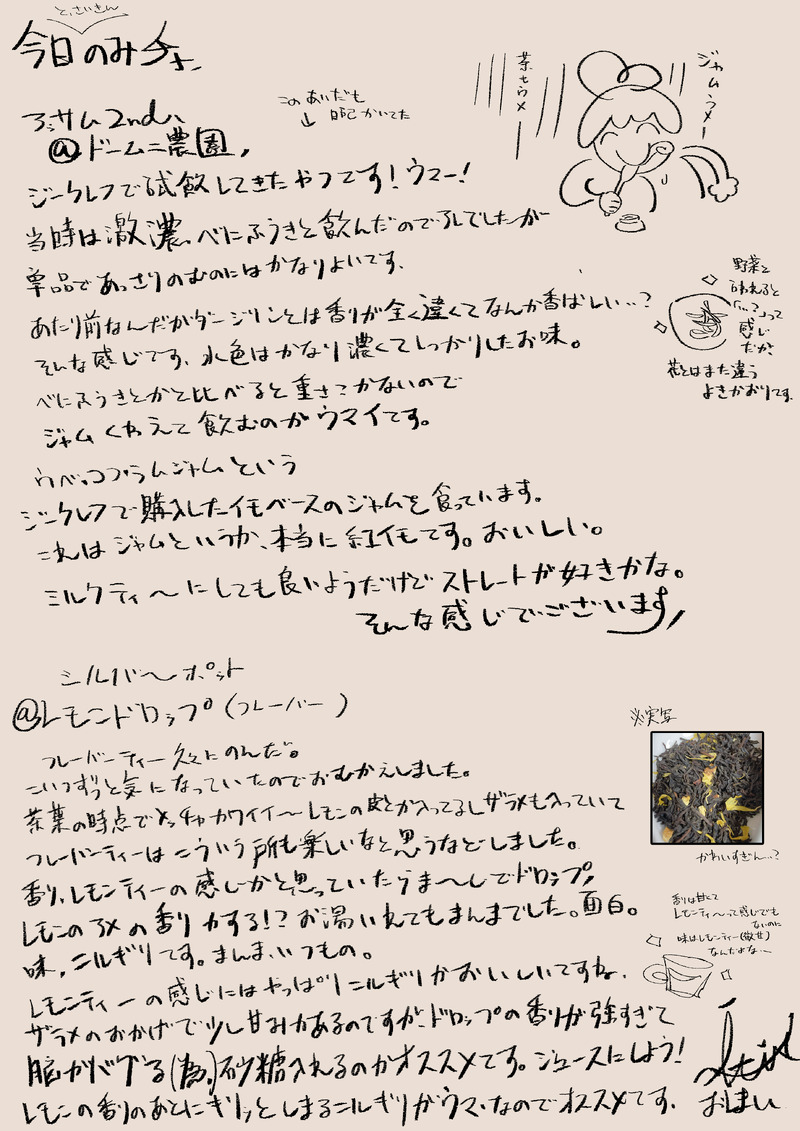 と、さいきん
今日のみチャ
このあいだも
↓日記かいてた
茶もウメー
ジャムウメー
アッサム2nd、
@ドームニ農園、
ジークレフで試飲してきたやつです！ウマー！
当時は激濃べにふうきと飲んだのでアレでしたが
単品であっさりのむのにはかなりよいです、
あたり前なんだがダージリンとは香りが全く違くてなんか香ばしい…？
そんな感じです、水色はかなり濃くてしっかりしたお味。
野菜と
いわれると
「…？」って
感じ
だが
花とはまた違う
よきかおりです。
べにふうきとかと比べると重さとかないので
ジャムくわえて飲むのがウマイです。
ウベッコプラムジャムという
ジークレフで購入したイモベースのジャムを食っています。
これはジャムというか、本当に紅イモです。おいしい。
ミルクティ〜にしても良いようだけどストレートが好きかな。
そんな感じでございます！
シルバ〜ポット
@レモンドロップ（フレーバー）
フレーバーティー久々にのんだ。
こいつずっと気になっていたのでおむかえしました。
茶葉の時点でメッチャカワイイ〜レモンの皮とか入ってるしザラメも入っていて
フレーバーティーはこういう所も楽しいなと思うなどしました。
※実写
かわいすぎん…？
香り、レモンティーの感じかと思っていたらま〜じでドロップ！
レモンのアメの香りがする！？お湯いれてもまんまでした。面白。
味、ニルギリです。まんま、いつもの。
香りは甘くて
レモンティ〜って感じでも
ないのに
味はレモンティー(微甘)
なんだよな…
レモンティーの感じにはやっぱりニルギリがおいしいですね、
ザラメのおかげで少し甘みがあるのですが、ドロップの香りが強すぎて
脳がバグる(為)砂糖入れるのがオススメです。ジュースにしよう！
レモンの香りのあとにギリッとしまるニルギリがウマ、なのでオススメです、
おしまい